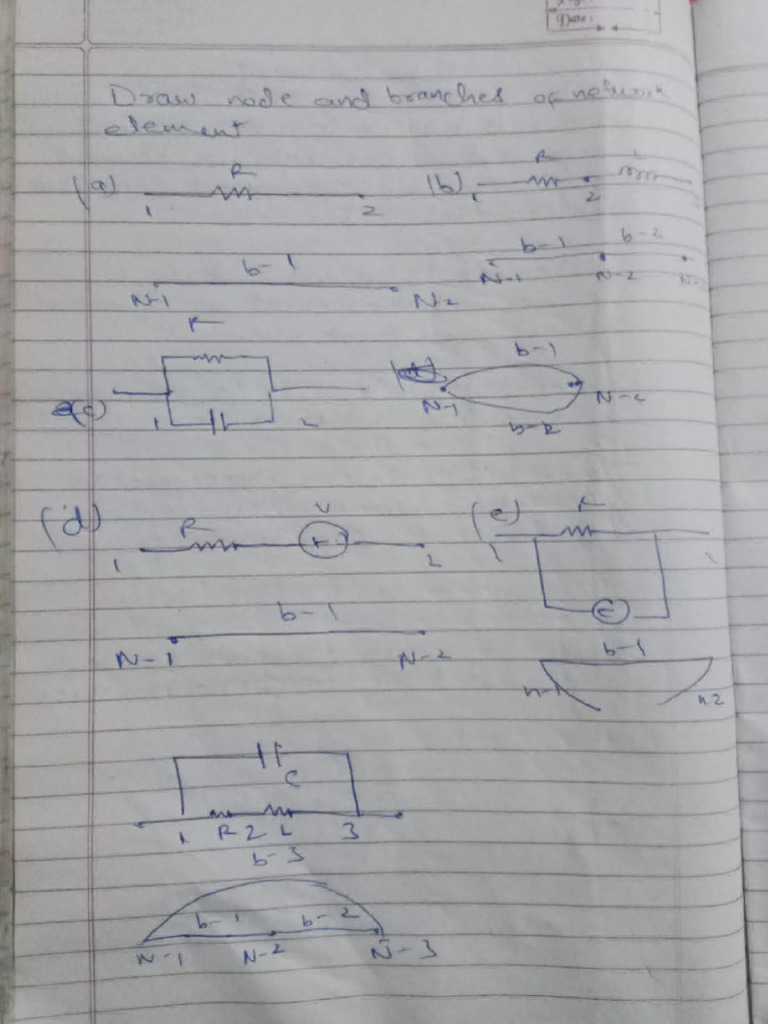 Date:
Draw node and branches of network
element
(a) R (b) R L
1 2 1 2
b-1 b-1 b-2
N-1 N-2 N-1 N-2
R b-1
(c) N-1 N-2
1 2 b-2
(d) R V (e) R
1 + - 2 1
b-1
N-1 N-2 b-1
n-1 n-2
C
1 R 2 L 3
b-3
b-1 b-2
N-1 N-2 N-3